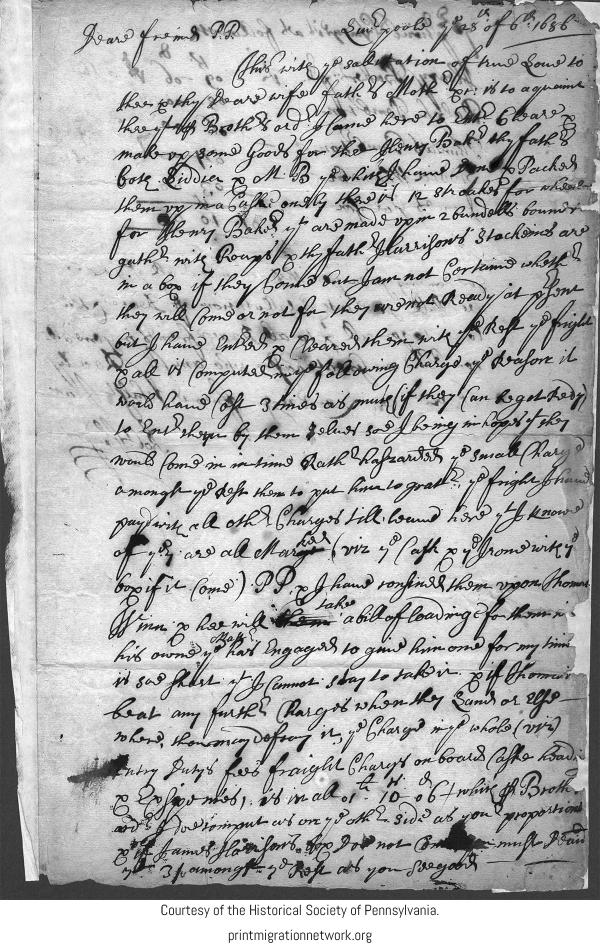 Deare freind P.P. Liuerpoole ye 25th of 6th 1686
This with ye salutation of true Loue to
thee & thy Deare wife fathr & Mothr &c: is to aquaint
thee yt Brothrs ordr I Came here to Entr & Cleare &
make vp some Goods for thee Henry Bakr thy fathr &
both & M B ye which I haue Done & Packed
them vp in a Caske onely there is 12 for
for Henry Bakr yt are made vp in 2 bundells bound
gathr with Roaps & thy fathr Harrisons Stockens are
in a box if they Come but I am not Certaine whethr
they will Come or not for they are not Ready at prsent
but I haue Entred & Cleared them with ye Rest ye fright
& all is Computed in ye following Charge ye Reason it
would haue Cost 3 times as much (if they Can be got Ready)
to Entr them by them selues soe I being in hopes yt they
would Come in in time Rathr hazzarded ye small Charge
amongst ye Rest them to put him to ye fright I haue
payd with all othr Charges till leaue here yt I know
of ym are all Marked (viz ye Cask & ye Irone with ye
box if it Come) P.P. & I haue consined them vpon Thomas
Winn & hee will take a bill of loading for them in
his owne ye Mastr has Engaged to giue him one for my time
is soe short yt I Cannot stay to take it & if Thomas
beat any furthr Charges when they Land or Else
where, thou may defray it, ye Charge in ye whole (viz)
Entry Dutys fees fraight Charges on board Caske heading
& Expences, is in all 01li 10s 06d which Brothr
I doe comput as on ye othr Side as your proportions
& if James Harrisons box Doe not Come must Dead
3s amongst ye Rest as you see good
Courtesy of the Historical Society of Pennsylvania.
printmigrationnetwork.org